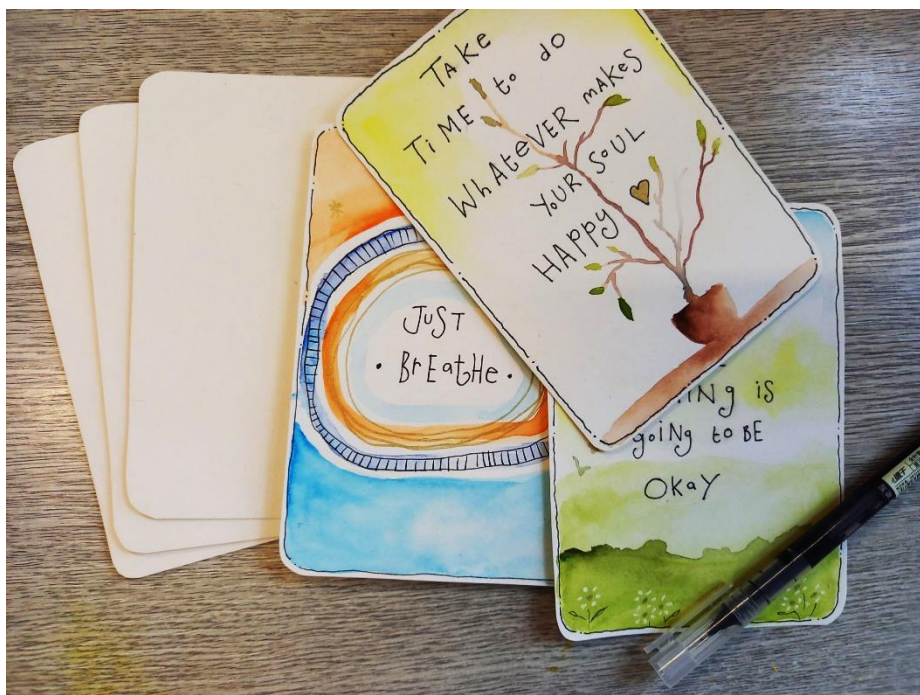 TAKE
TiME to do
WhAteVER mAKes
YoUR SoUL
HAPPY
JuST
• BrEatHe •
is
goiNg to BE
OKaY